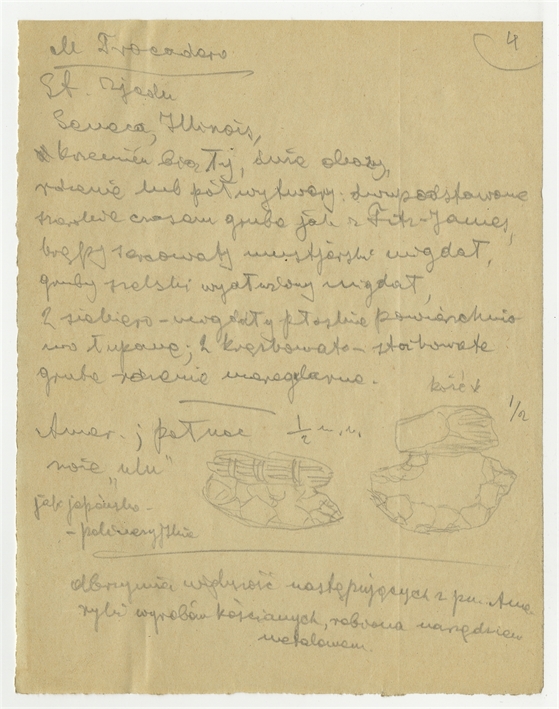 4
M Trocadero
St. Zjedn
Seneca, Illinois,
krzemień biały, duże okazy,
rdzenie lub półwytwory: dwupodstawowe
szerokie czasem grube jak z Fitz-James,
tępy sercowaty mustjerski migdał,
gruby szelski wydłużony migdał,
2 siekiero-migdały płaskie powierzchnio
wo łupane; 2 krążkowate-stożkowate
grube rdzenie nieregularne.
kość
1/2
Amer. północ 1/2 w. n.
noże „ulu"
jak japońsko-
-polinezyjskie
olbrzymia większość następujących z pn. Ame-
ryki wyrobów kościanych, robiona narzędziem
metalowem.